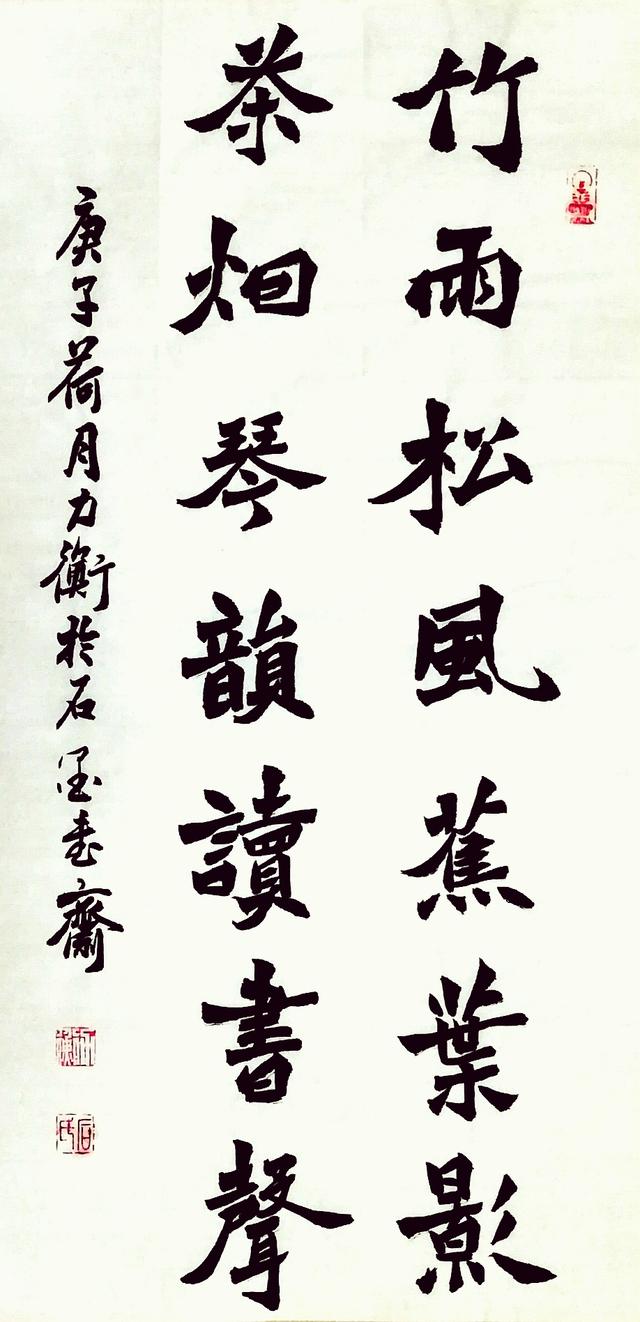 竹雨松風蕉葉影
茶烟琴韻讀書聲
庚子荷月力衡於石墨書齋